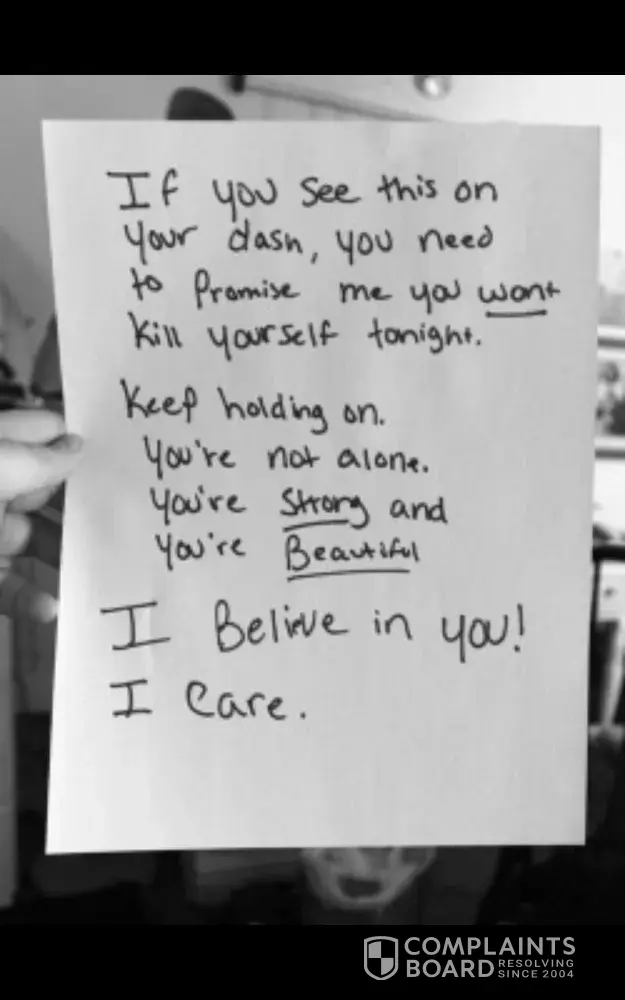 If you see this on
your dash, you need
to promise me you wont
kill yourself tonight.
Keep holding on.
You're not alone.
You're Strong and
You're Beautiful
I Belive in you!
I Care.
COMPLAINTS
BOARD RESOLVING
SINCE 2004